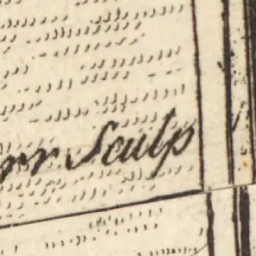 rr Sculp